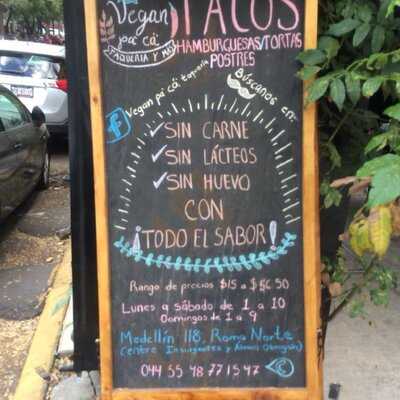 Vegan
pa' cá
TAQUERIA Y MÁS
TACOS
HAMBURGUESAS/TORTAS
POSTRES
Búscanos en:
Vegan pa' cá: taquería
f
✓SIN CARNE
✓SIN LÁCTEOS
✓SIN HUEVO
CON
¡TODO EL SABOR!
Rango de precios $15 a $56.50
Lunes a sábado de 1 a 10
Domingos de 1 a 9
Medellín 118, Roma Norte
(entre Insurgentes y Álvaro Obregón)
044 55 48 77 15 47